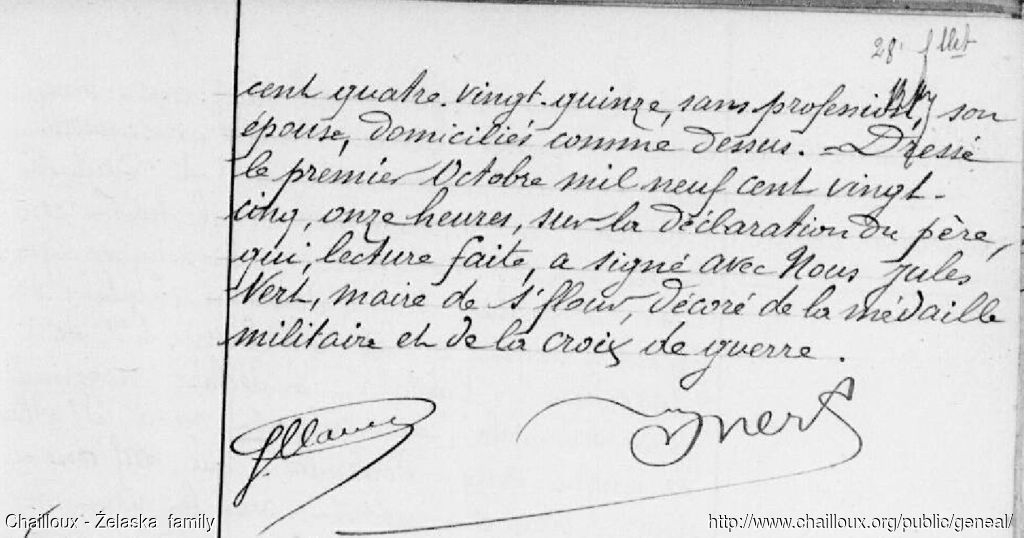 28
cent quatre-vingt-quinze, sans profession, son
épouse, domiciliés comme dessus. - Dressé
le premier Octobre mil neuf cent vingt-
cinq, onze heures, sur la déclaration du père,
qui, lecture faite, a signé avec Nous Jules
Vert, maire de St flour, décoré de la médaille
militaire et de la croix de guerre.
JVert
Chailloux - Żelaska family
http://www.chailloux.org/public/geneal/